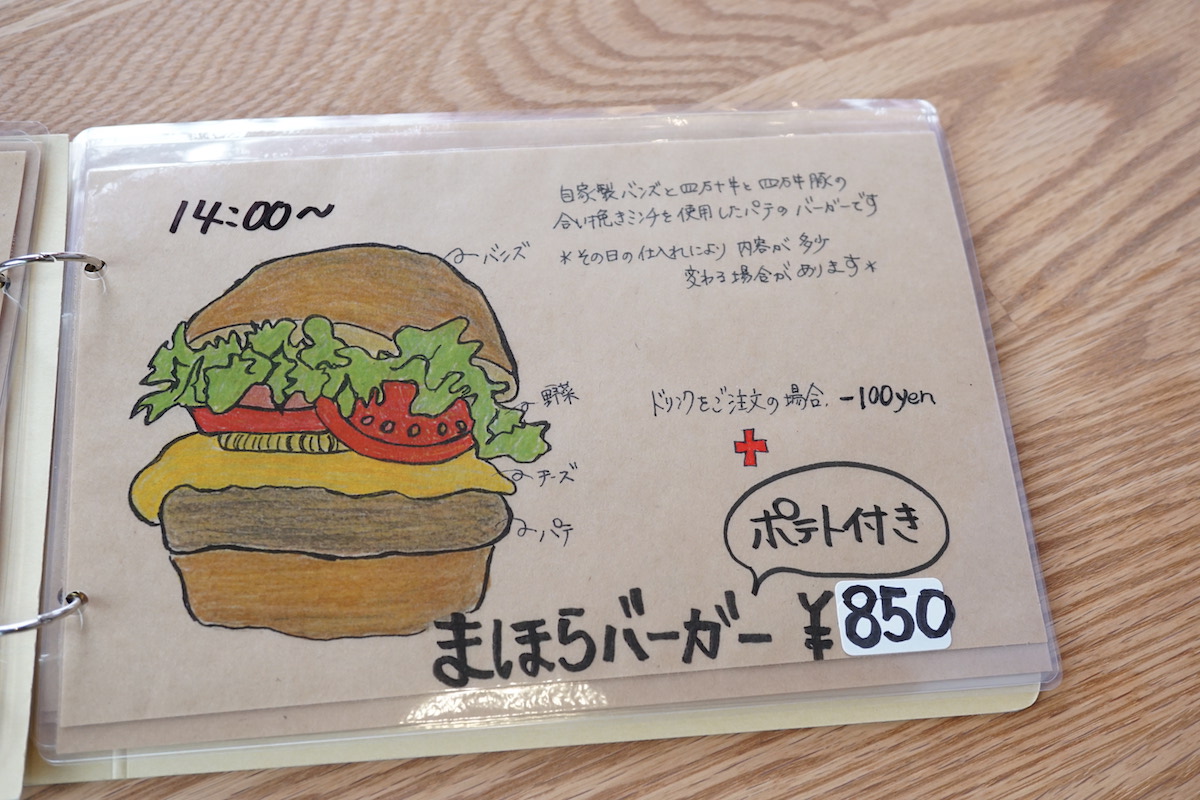 14:00～
自家製バンズと四万十牛と四万十豚の
合い挽きミンチを使用したパテのバーガーです
*その日の仕入れにより内容が多少
変わる場合があります*
バンズ
野菜
チーズ
パテ
ドリンクをご注文の場合、-100yen
ポテト付き
まほらバーガー ¥850